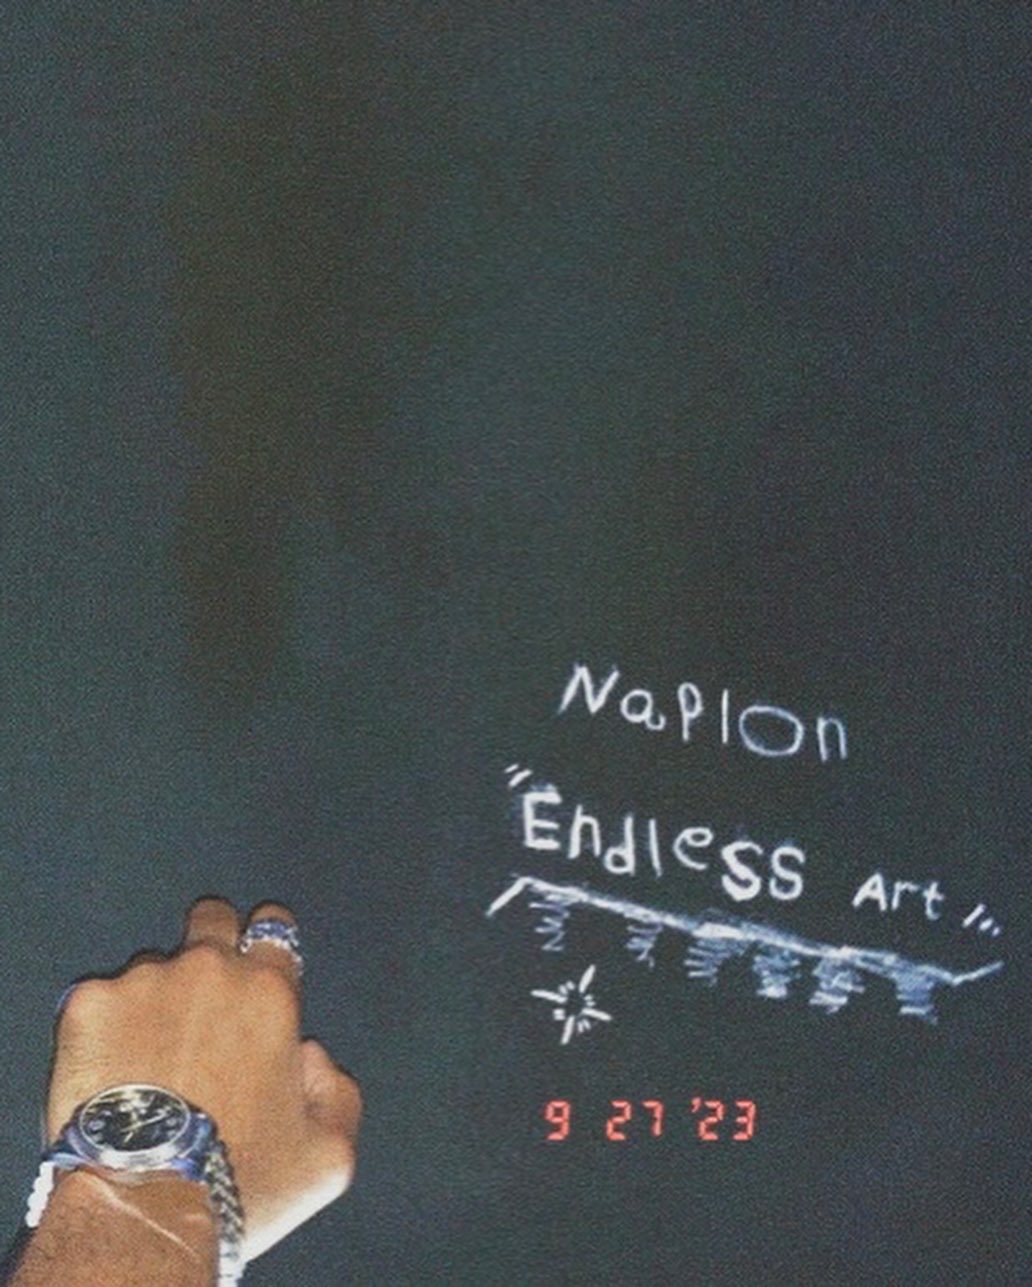 Naplon
"Endless Art"
9 27 '23